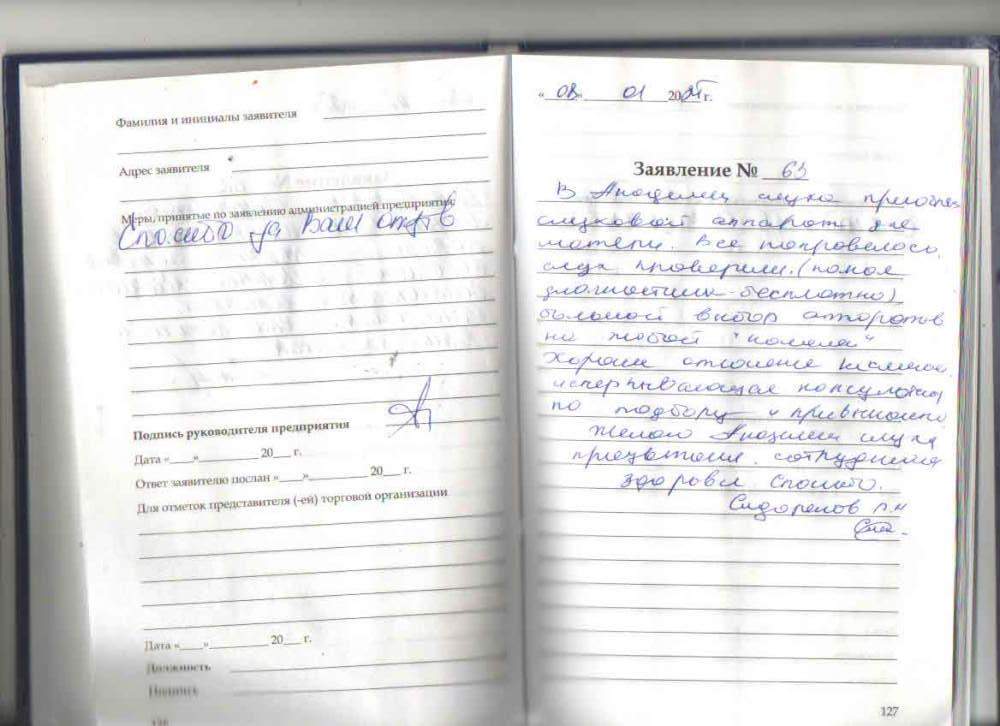 Фамилия и инициалы заявителя
Адрес заявителя
Меры, принятые по заявлению администрацией предприятия:
Спасибо за Ваш отзыв
Подпись руководителя предприятия
Дата «____»__________ 20___ г.
Ответ заявителю послан «____»__________ 20___ г.
Для отметок представителя (-ей) торговой организации
Дата «____»__________ 20___ г.
Должность
Подпись
«08» 01 20 г.
Заявление № 63
В Академии слуха приобрел
слуховой аппарат для
матери. Все понравилось,
слух проверили. (полная
диагностика - бесплатно)
большой выбор аппаратов
на любой "кошелек"
Хорошее отношение
исчерпывающая консультация
по подбору и привыканию
Желаю Академии слуха
процветания. сотрудникам
здоровья Спасибо.
Сидоренков
127